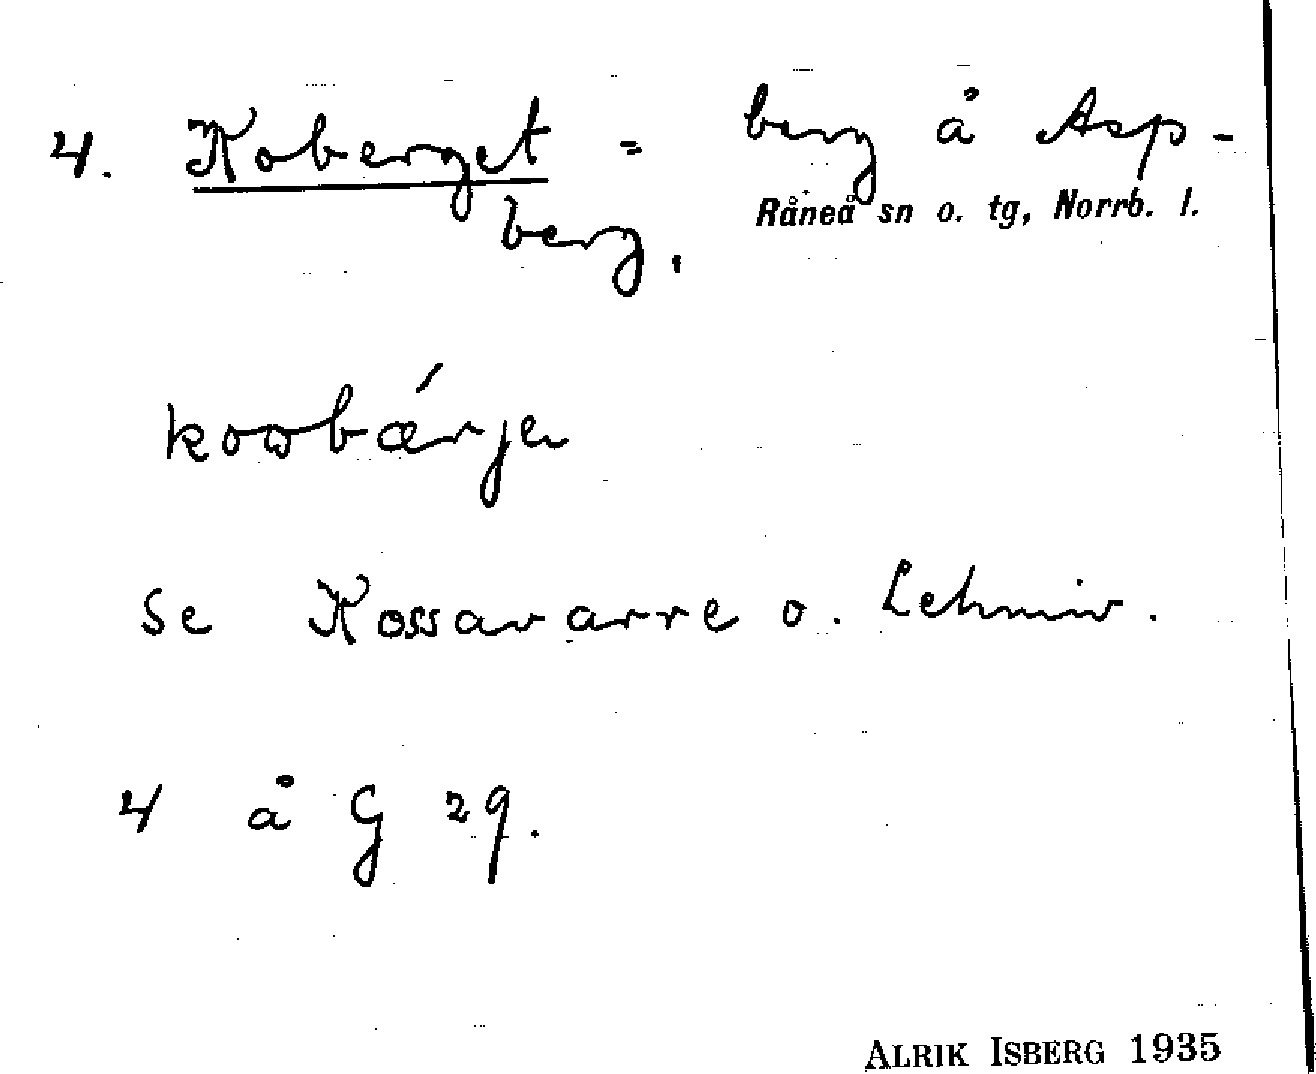 4. Koberget = berg å Asp-
Råneå sn o. tg, Norrb. l.
berg.
koobǽrje
se Kossavarre o. Lehmiv.
4 å G 29.
ALRIK ISBERG 1935